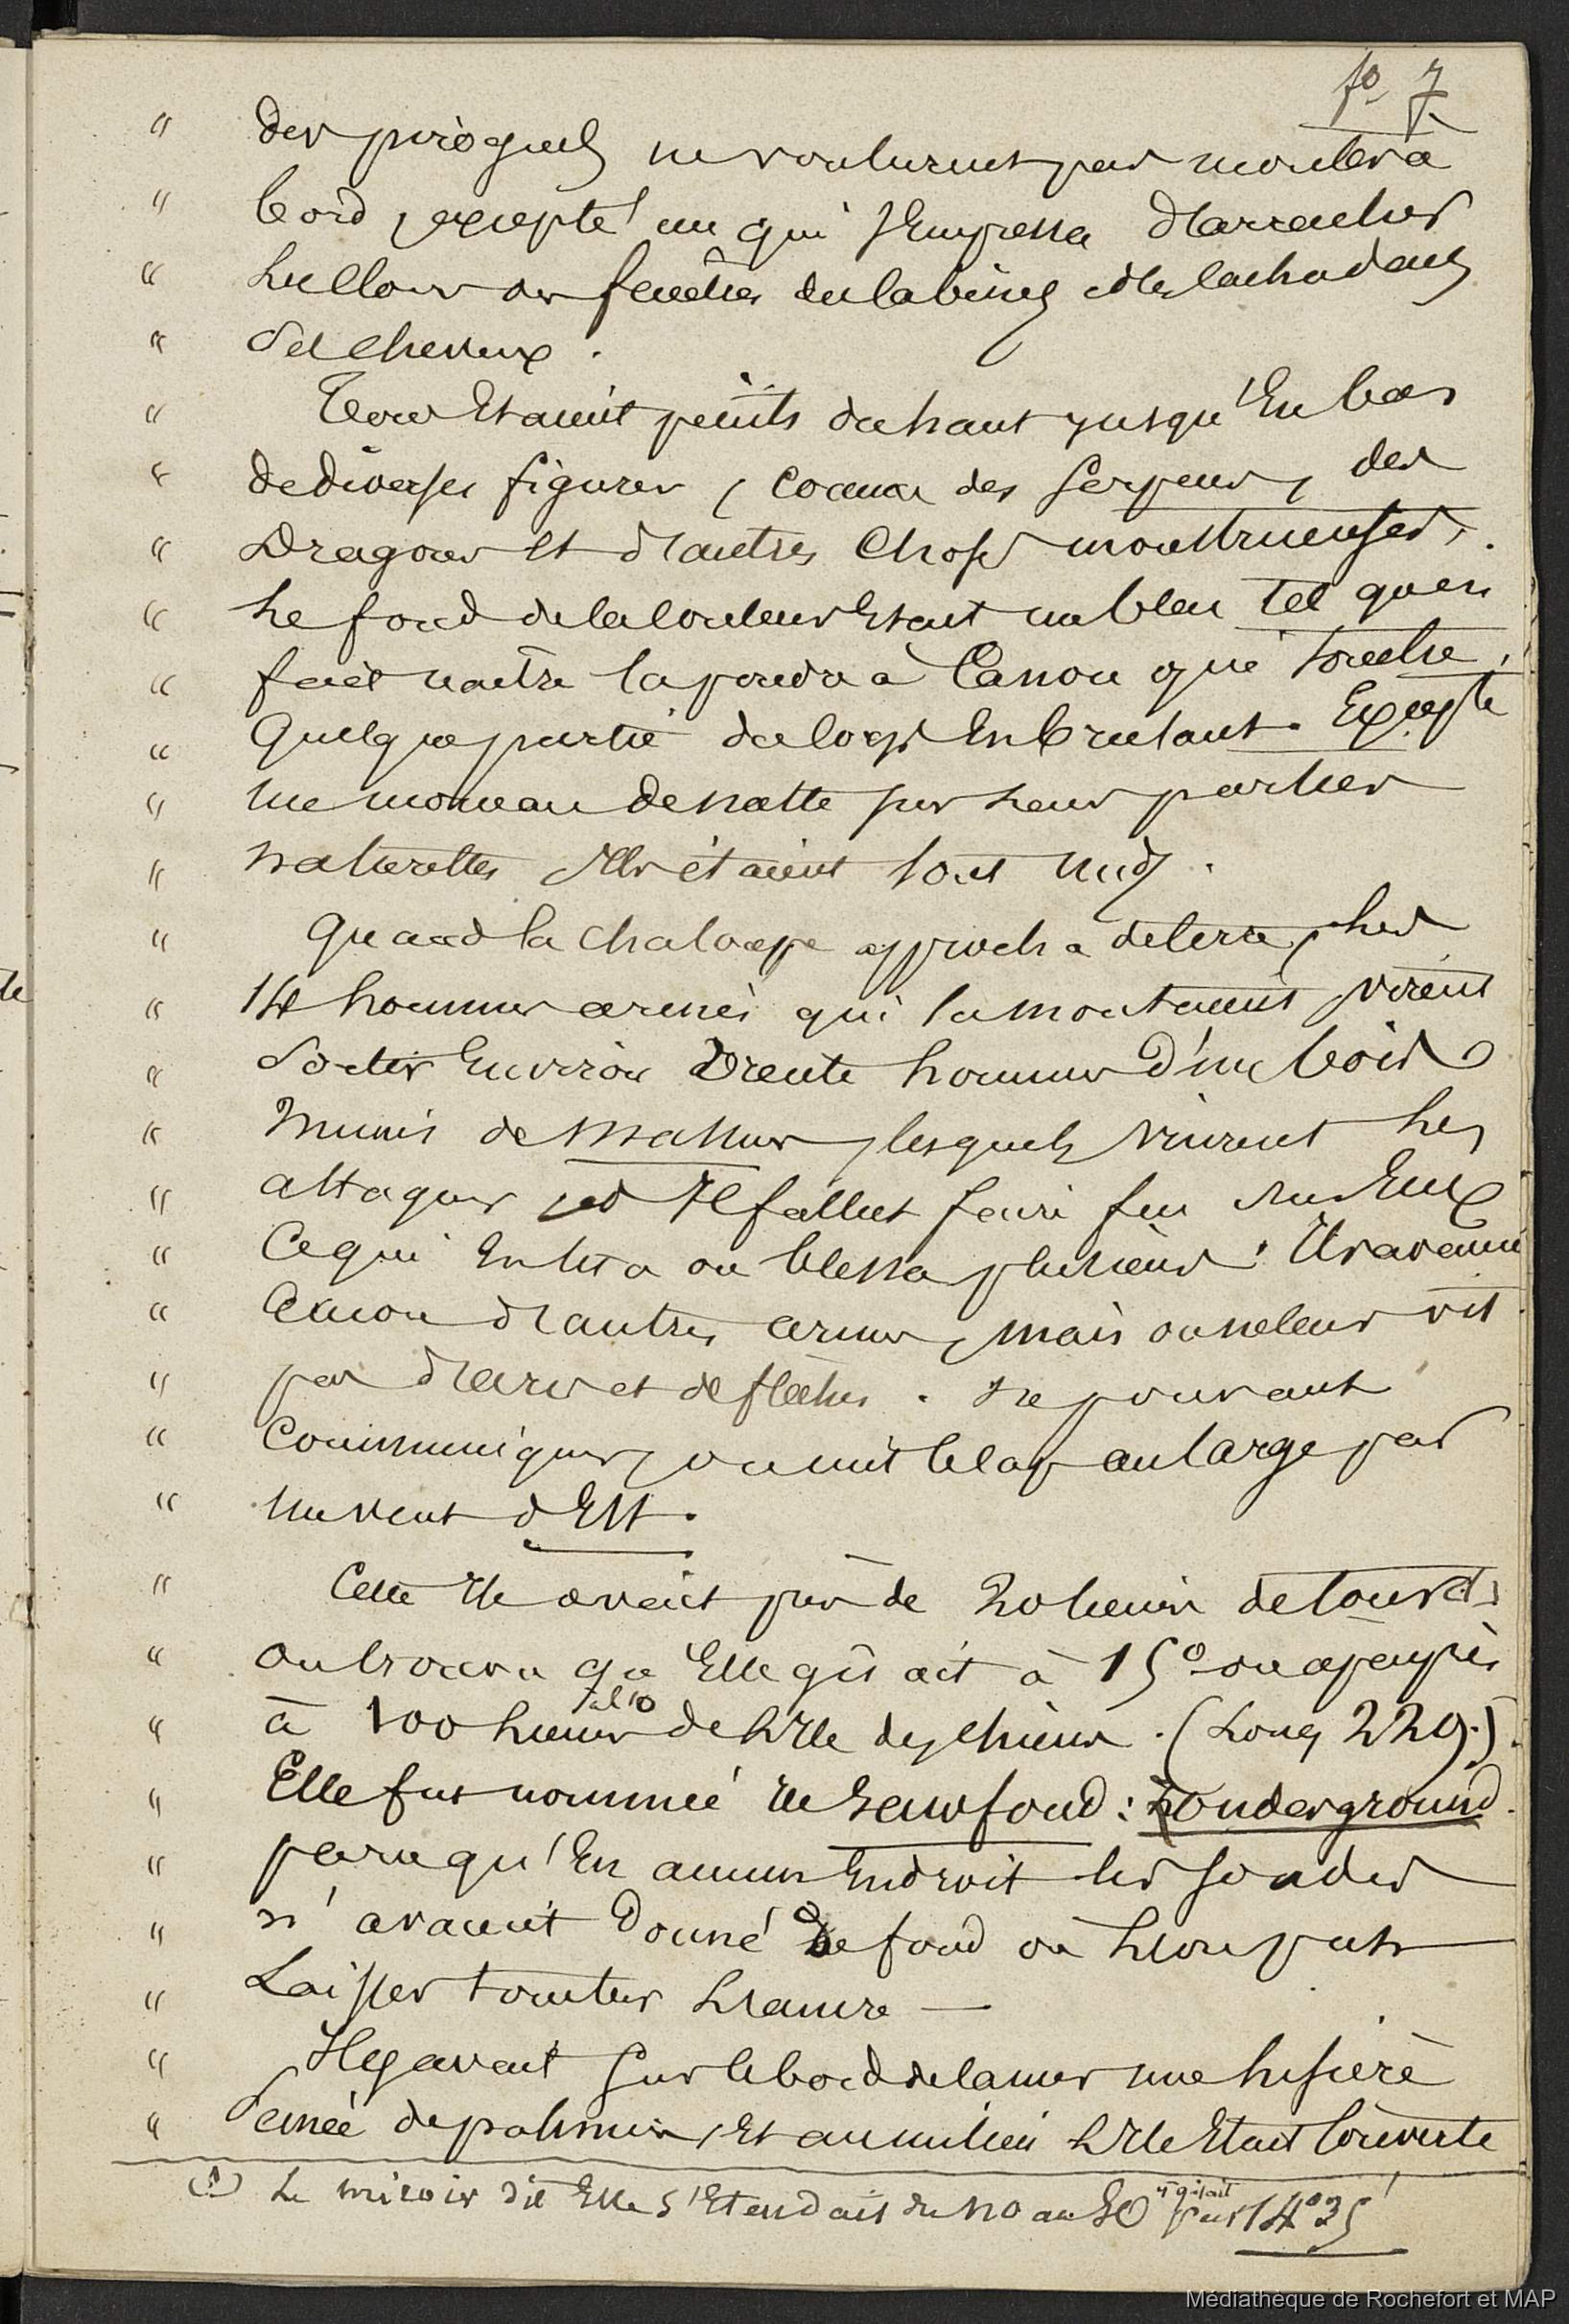 fo 7
" des pirogues ne voulurent pas monter à
" bord, excepté un qui s'empressa d'arracher
" les clous des fenêtres de cabines et les cacha dans
" ses cheveux.
" Tous étaient peints du haut jusqu'en bas
" de diverses figures, comme des serpens, des
" Dragons et d'autres choses monstrueuses.
" Le fond de la couleur était un bleu tel qu'en
" fait naître la poudre à Canon qui touche
" Quelque partie du corps en brulant. Excepté
" un morceau de natte sur leurs parties
" naturelles ils étaient tout nuds.
" Quand la chaloupe approcha de terre, les
" 14 hommes armés qui la montaient virent
" sortir environ trente hommes d'un bois
" munis de massues, lesquels vinrent les
" attaquer et il fallut faire feu sur eux
" Ce qui en tua ou blessa plusieurs. Ils avaient
" encore d'autres armes, mais on ne leur vit
" pas d'arcs et de flèches. Ne pouvant
" Communiquer, on mit le cap au large par
" un vent d'Est.
" Cette Ile avait près de 20 lieues de tour et
" on trouva qu'Elle gisait à 15° ou à peu près
" à 100 lieues de l'Ile des chiens. (Long 229.)
" Elle fut nommée Ile Sans fond: Zonderground
" parce qu'en aucun Endroit les sondes
" n'avaient donné de fond où l'on put
" Laisser tomber l'ancre —
" Il y avait sur le bord de la mer une lisière
" semée de palmiers, Et au milieu l'Ile était couverte
(1) Le miroir dit Elle s'Etendait du NO au SO et gisait par 14°35'
Médiathèque de Rochefort et MAP